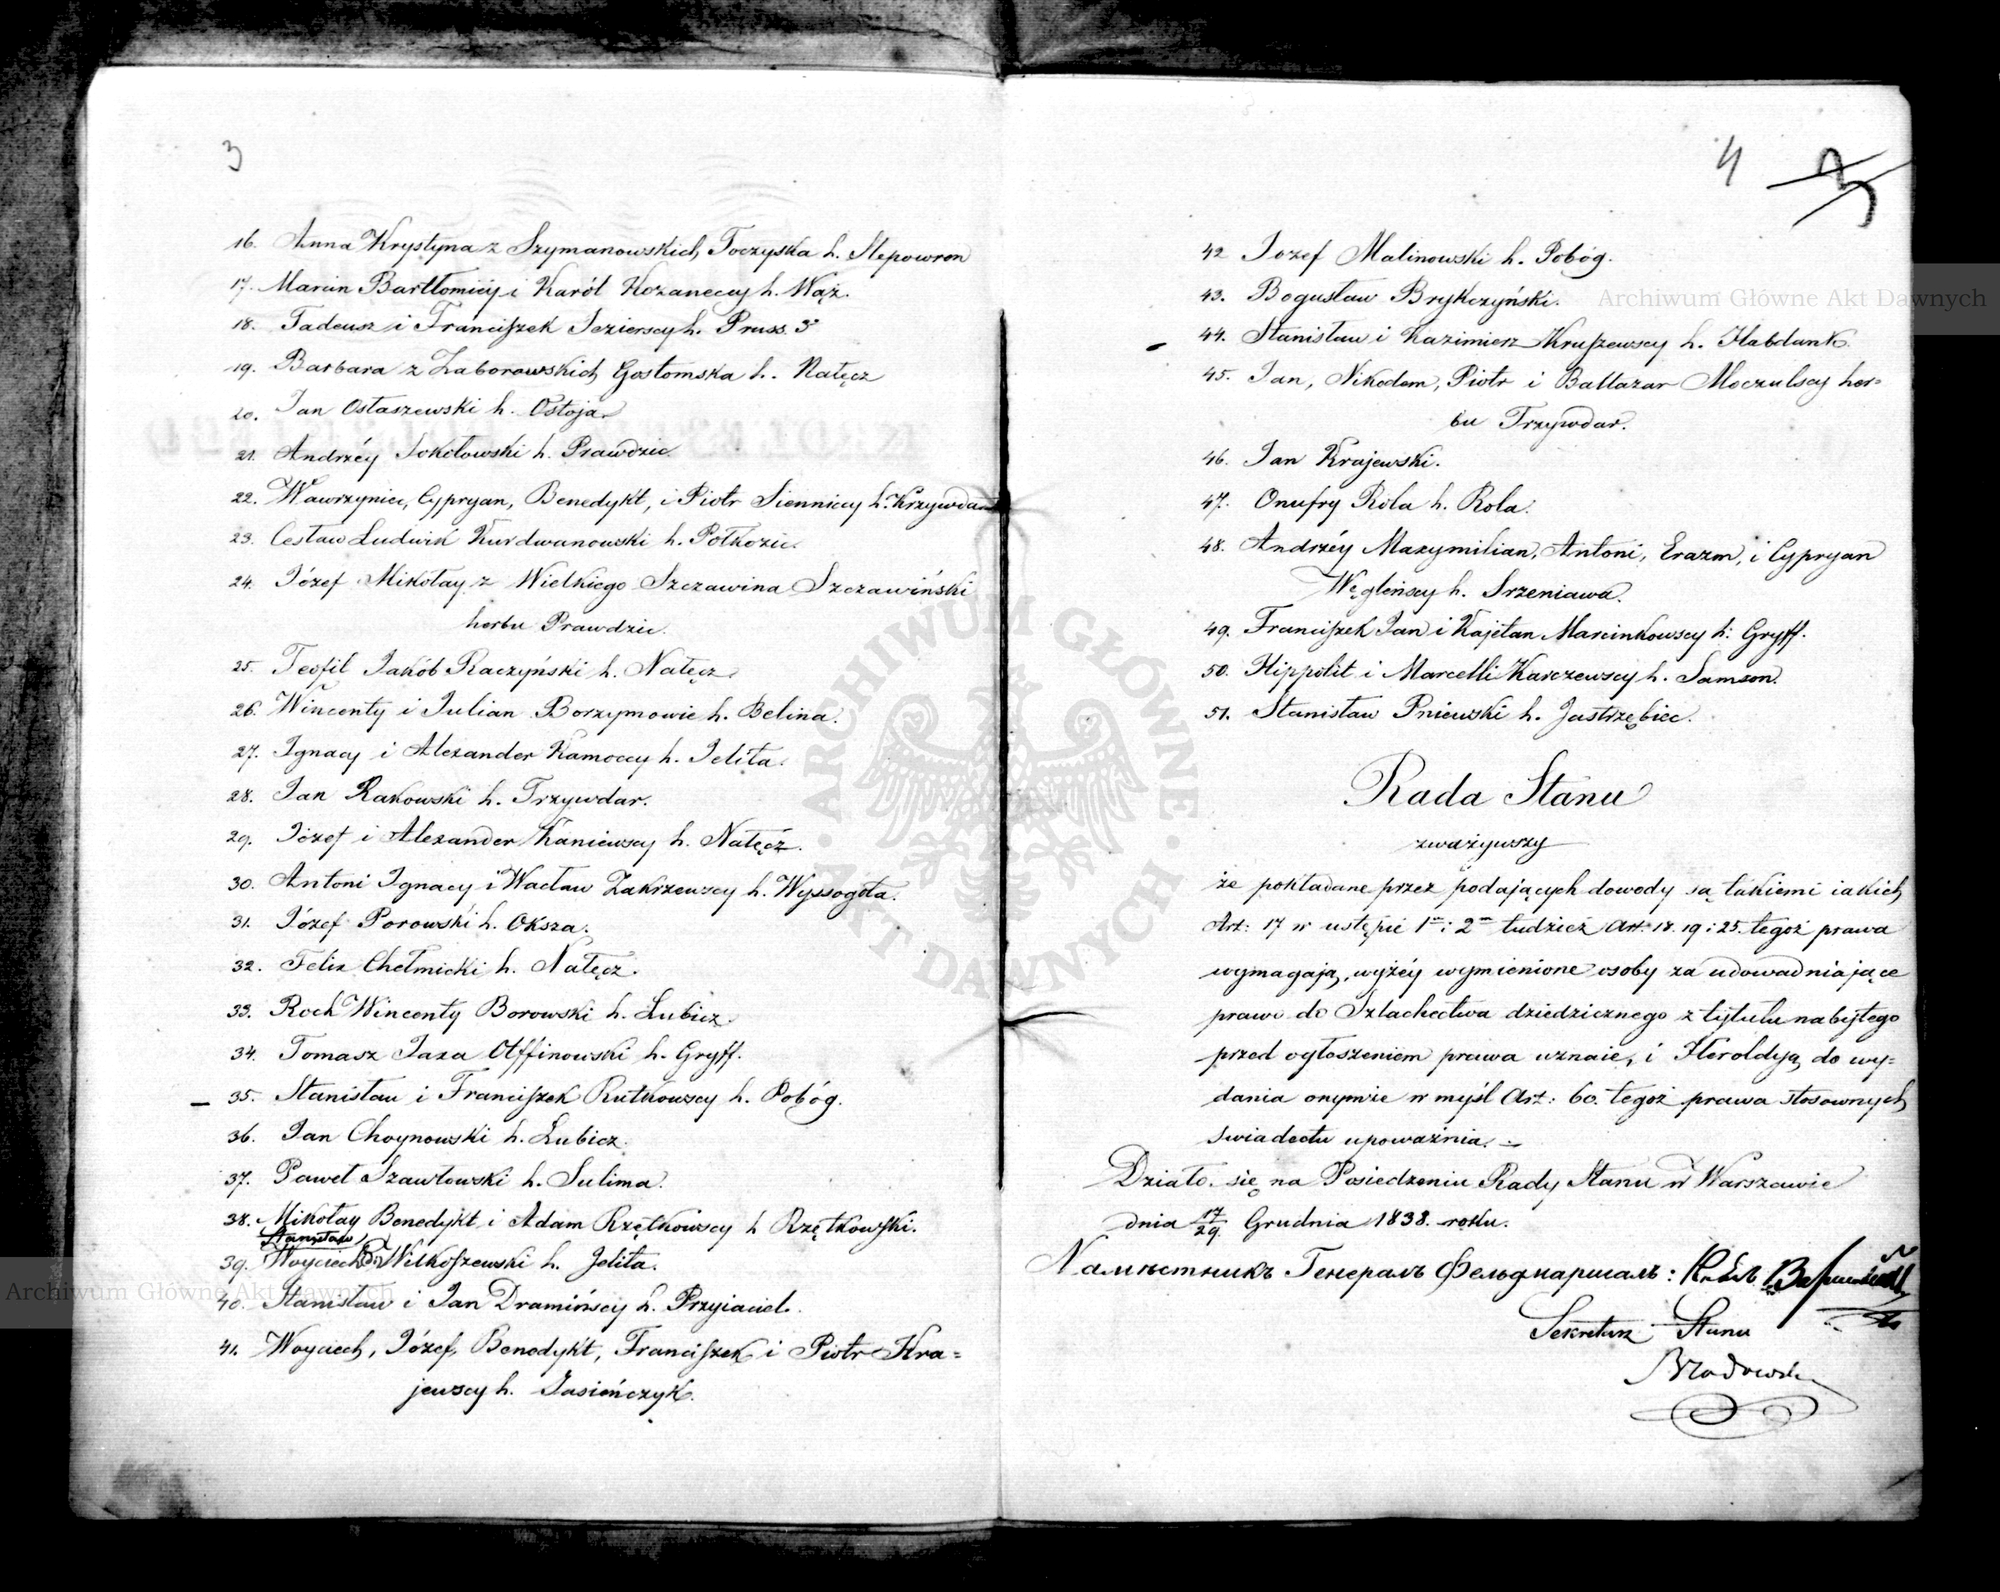 3
16. Anna Krystyna z Szymanowskich Toczyska h. Slepowron
17. Marcin Bartłomiéy i Karól Kozaneccy h. Wąż.
18. Tadeusz i Franciszek Jezierscy h. Pruss. 3º
19. Barbara z Zaborowskich Gostomska h. Nałęcz
20. Jan Ostaszewski h. Ostoja.
21. Andrzéy Sokołowski h. Prawdzic
22. Wawrzyniec, Cypryan, Benedykt, i Piotr Sienniccy h. Krzywda
23. Cesław Ludwik Kurdwanowski h. Połkozic.
24. Józef Mikołay z Wielkiego Szczawina Szczawiński
herbu Prawdzic.
25. Teofil Jakób Raczyński h. Nałęcz.
26. Wincenty i Julian Borzymowie h. Belina.
27. Ignacy i Alexander Kamoccy h. Jelita.
28. Jan Rakowski h. Trzywdar.
29. Józef i Alexander Kaniewscy h. Nałęcz.
30. Antoni Ignacy i Wacław Zakrzewscy h. Wyssogota.
31. Józef Porowski h. Oksza.
32. Felix Chełmicki h. Nałęcz.
33. Roch Wincenty Borowski h. Lubicz
34. Tomasz Jaxa Olffinowski h. Gryff.
35. Stanisław i Franciszek Rutkowscy h. Pobóg.
36. Jan Choynowski h. Lubicz.
37. Paweł Szawłowski h. Sulima.
38. Mikołay Benedykt i Adam Rzętkowscy h Rzętkowski.
Stanisław
39. Woyciech Wilkoszewski h. Jelita.
40. Stanisław i Jan Dramińscy h. Przyiaciel.
41. Woyciech, Józef, Benedykt, Franciszek i Piotr Kra=
jewscy h. Jasieńczyk.
4
3
42 Jozef Malinowski h. Pobóg.
43. Bogusław Brykczyński.
44. Stanisław i Kazimierz Kruszewscy h. Habdank.
45. Jan, Nikodem, Piotr i Baltazar Moczulscy her=
bu Trzywdar.
46. Jan Krajewski.
47. Onufry Rola h. Rola.
48. Andrzéy Maxymilian, Antoni, Erazm, i Cypryan
Węgleńscy h. Srzeniawa.
49. Franciszek Jan i Kajetan Marcinkowscy h: Gryff.
50. Hippolit i Marcelli Karczewscy h. Samson.
51. Stanisław Pniewski h. Jastrzębiec.
Rada Stanu
zważywszy
że pokładane przez podających dowody są takiemi iakich
Art: 17 w ustępie 1m i 2m tudzież Art. 18. 19 i 25. tegoż prawa
wymagają, wyżéy wymienione osoby za udowadniające
prawo do Szlachectwa dziedzicznego z tytułu nabytego
przed ogłoszeniem prawa uznaie, i Heroldyą do wy=
dania onymże w myśl Art: 60. tegoż prawa stosownych
świadectw upoważnia. –
Działo się na Posiedzeniu Rady Stanu w Warszawie
dnia 17/29 Grudnia 1838. roku.
Намѣстникъ Генералъ Фельдмаршалъ:
Sekretarz Stanu
Archiwum Główne Akt Dawnych
Archiwum Główne Akt Dawnych
ARCHIWUM GŁÓWNE AKT DAWNYCH